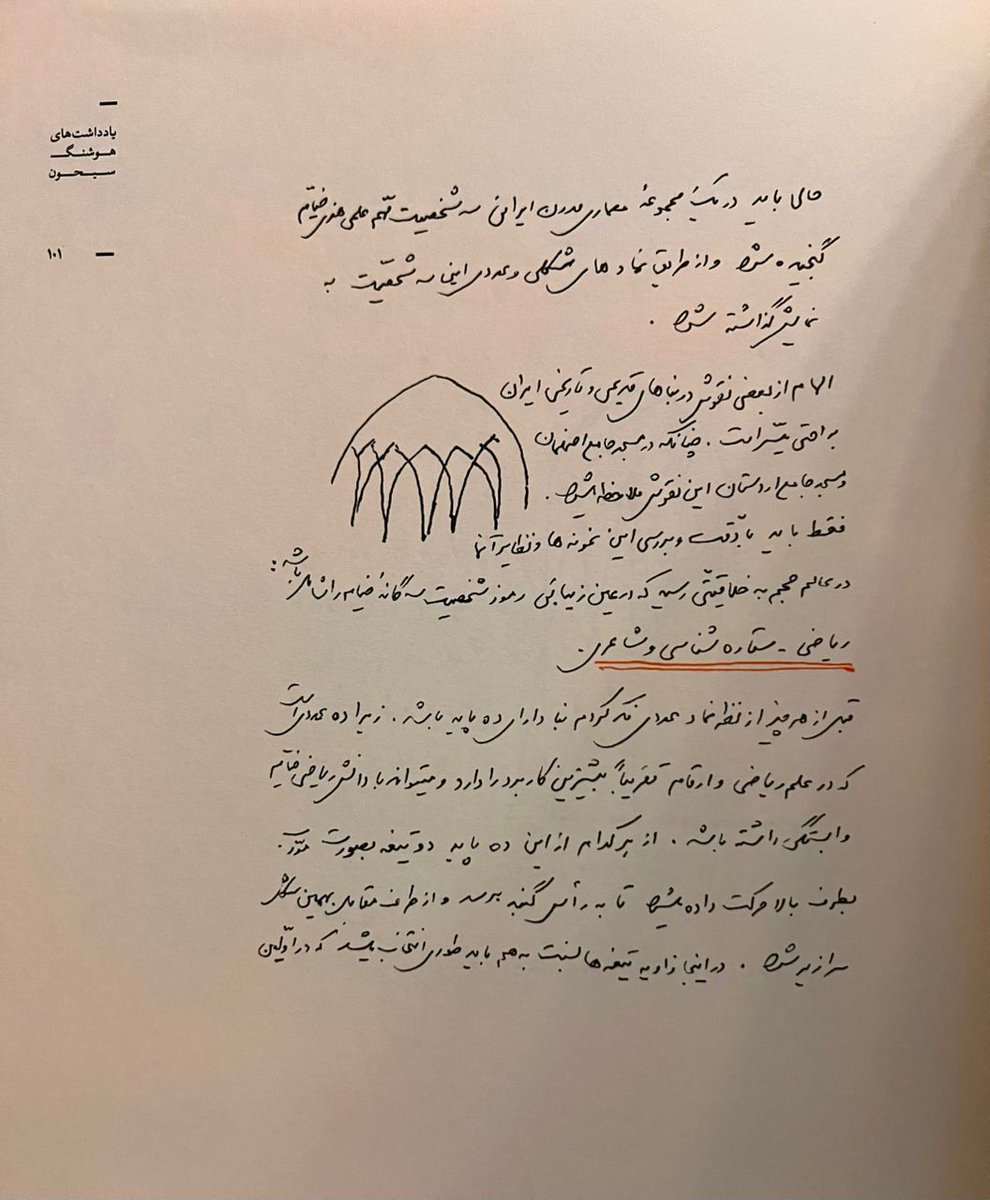 یادداشت‌های
هوشنگ
سیحون
۱۰۱
حالا باید در یک مجموعهٔ معماری مدرن ایرانی سه شخصیت مهم علمی هنری خیّام
گنجیده شود و از طریق نمادهای شکلی و عددی این سه شخصیّت به
نمایش گذاشته شود .
الهام از بعضی نقوش در بناهای قدیمی و تاریخی ایران
براحتی میّسر است . چنانکه در مسجد جامع اصفهان
و مسجد جامع اردستان این نقوش ملاحظه میشود .
فقط باید با دّقت و بررسی این نمونه ها و نظایر آنها
در عالم حجم به خلاقیّتی رسید که در عین زیبائی رموز شخصیت سه گانهٔ خیام را شامل باشد :
ریاضی - ستاره شناسی و شاعری .
قبل از هر چیز از نظر نماد عددی فکر کردم بنا دارای ده پایه باشد . زیرا ده عددی است
که در علم ریاضی و ارقام تقریباً بیشترین کاربرد را دارد و میتواند با دانش ریاضی خیّام
وابستگی داشته باشد . از هر کدام از این ده پایه دو تیغه بصورت مورّب
بطرف بالا حرکت داده میشود تا به رأس گنبد برسد و از طرف مقابل بهمین شکل
سرازیر شود . در اینجا زاویه تیغه ها نسبت به هم باید طوری انتخاب میشد که در اوّلین